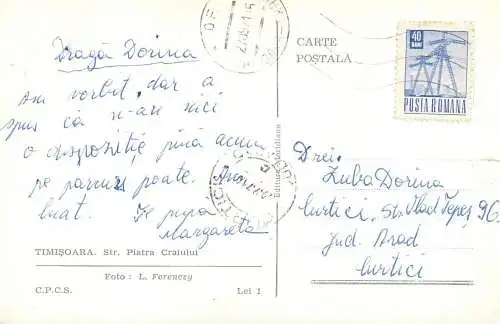 Dragă Dorina
Am vorbit, dar a
spus că n-are nici
o dispoziție pînă acum
pe parcurs poate. Am
luat. Te pupă
Margareta
TIMIȘOARA. Str. Piatra Craiului
Foto : L. Ferenczy
C.P.C.S.
Lei 1
Editura Meridiane
CARTE
POSTALĂ
40
BANI
POSTA ROMANA
Drei.
Zuba Dorina
Curtici, St. Vlad Țepeș 96
Jud. Arad
Curtici